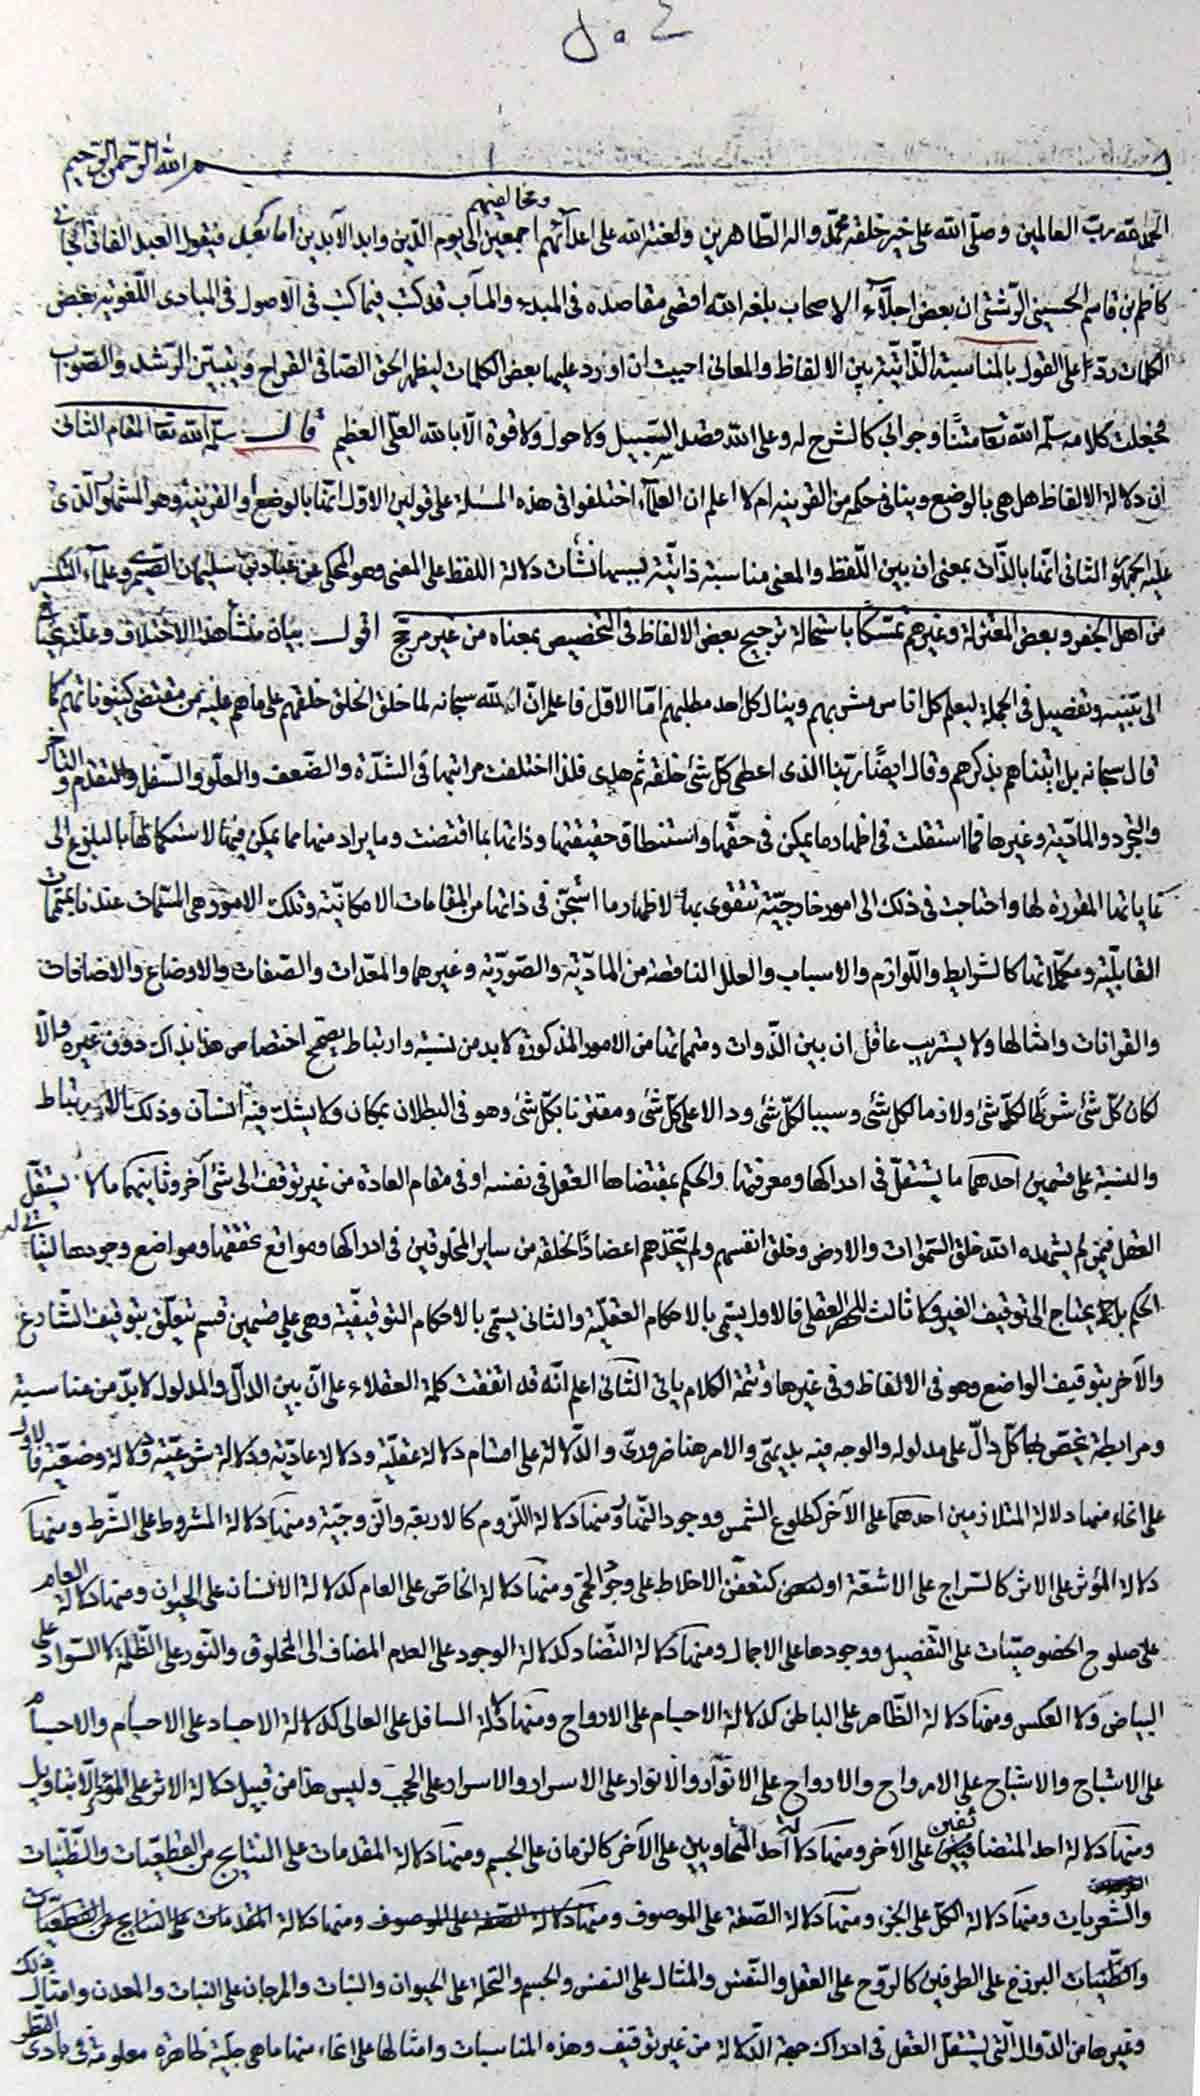 بسم الله الرحمن الرحيم
الحمد لله رب العالمين وصلى الله على خير خلقه محمد واله الطاهرين ولعنة الله على اعدآئهم ومخالفيهم اجمعين الى يوم الدين وابد الآبدين اما بعد فيقول العبد الفانى الجانى
كاظم بن قاسم الحسينى الرشتى ان بعض اجلآء الاصحاب بلغه الله اقصى مقاصده فى المبدء والمآب قد كتب فيما كتب فى الاصول فى المبادى اللغوية بعض
الكلمات ردّا على القول بالمناسبة الذاتية بين الالفاظ والمعانى احببت ان اورد عليها بعض الكلمات ليظهر الحق الصافى القراح ويتبين الرشد والصواب
فجعلت كلامه سلمه الله تعا متنًا وجوابى كالشرح له وعلى الله قصد السبيل ولا حول ولا قوة الا بالله العلى العظيم قال سلمه الله تعا المقام الثانى
ان دلالة الالفاظ هل هى بالوضع وينافى حكم من القرينه ام لا اعلم ان العلمآء اختلفوا فى هذه المسئلة على قولين الاول انها بالوضع او القرينة وهو المشهور الذى
عليه الجمهور الثانى انها بالذات بمعنى ان بين اللفظ والمعنى مناسبة ذاتية لسببها نشأت دلالة اللفظ على المعنى وهو المحكى عن عباد بن سليمان الصيمرى وعلمآء التكسير
من اهل الجفر وبعض المعتزلة وغيرهم تمسكا باستحالة ترجيح بعض الالفاظ فى التخصيص بمعناه من غير مرجح اقول بيان منشأ هذا الاختلاف وعلته يحتاج
الى تنبيه وتفصيل فى الجملة ليعلم كل اناس مشربهم وينال كل احد مطلبهم اما الاول فاعلم ان الله سبحانه لما خلق الخلق خلقهم على ماهم عليه من مقتضى كينوناتهم كما
قال سبحانه بل اتيناهم بذكرهم وقال ايضًا ربنا الذى اعطى كل شئ خلقه ثم هدى فلذا اختلفت مراتبها فى الشدة والضعف والعلو والسفل والتقدم والتأخر
والتجرد والمادية وغيرها فما استقلت فى اظهار ما يمكن فى حقها واستنطاق حقيقتها وذاتها بما اقتضت وما يراد منها مما يمكن فيها لاستكمالها بالبلوغ الى
غاياتها المقررة لها واحتاجت فى ذلك الى امور خارجية تتقوى بها لاظهار ما استجن فى ذاتها من المقامات الامكانية وتلك الامور هى المسمات عندنا بمتممات
القابلية ومكملاتها كالشرايط واللوازم والاسباب والعلل الناقصة من المادية والصورية وغيرهما والمعدات والصفات والاوضاع والاضافات
والقرانات وامثالها ولا يستريب عاقل ان بين الذوات ومتمماتها من الامور المذكورة لابد من نسبة وارتباط يصحح اختصاص هذا بذاك دون غيره والا
لكان كل شئ شرطًا لكل شئ ولازما لكل شئ وسببا لكل شئ ودالا على كل شئ ومقترنا بكل شئ وهو فى البطلان بمكان ولا يشك فيه انسان وذلك الارتباط
والنسبة على قسمين احدهما ما يستقل فى ادراكها ومعرفتها والحكم بمقتضاها العقل فى نفسه او فى مقام العادة من غير توقف الى شئ آخر وثانيهما ما لا يستقل
العقل فيمن لم يشهده الله خلق السموات والارض وخلق انفسهم ولم يتخذهم اعضادًا لخلقه من ساير المخلوقين فى ادراكها ومواقع تحققها ومواضع وجودها ليتأتى له
الحكم بل يحتاج الى توقيف الغير ولا ثالث للحصر العقلى فالاول يسمى بالاحكام العقلية والثانى يسمى بالاحكام التوقيفية وهى على قسمين قسم يتعلق بتوقيف الشارع
والآخر بتوقيف الواضع وهو فى الالفاظ وفى غيرها وتتمة الكلام ياتى الثانى اعلم انه قد اتفقت كلمة العقلاء على ان بين الدال والمدلول لابد من مناسبة
ومرابطة يختص بها كل دال على مدلوله والوجه فيه بديهى والامر هنا ضرورى والدلالة على اقسام دلالة عقلية ودلالة عادية ودلالة شرعية ودلالة وضعية فالاولى
على انحاء منها دلالة المتلازمين احدهما على الآخر كطلوع الشمس ووجود النهار ومنها دلالة اللزوم كالاربعة والزوجية ومنها دلالة المشروط على الشرط ومنها
دلالة المؤثر على الاثر كالسراج على الاشعة او كتعفن الاخلاط على وجود الحمى ومنها دلالة الخاص على العام كدلالة الانسان على الحيوان ومنها دلالة العام
على صلوح الخصوصيات على التفصيل ووجودها على الاجمال ومنها دلالة التضاد كدلالة الوجود على العدم المضاف الى المخلوق والنور على الظلمة كالسواد على
البياض ولا العكس ومنها دلالة الظاهر على الباطن كدلالة الاجسام على الارواح ومنها دلالة السافل على العالى كدلالة الاجساد على الاجسام والاجسام
على الاشباح والاشباح على الارواح والارواح على الانوار والانوار على الاسرار والاسرار على الحجب وليس هذا من قبيل دلالة الاثر على المؤثر الا بتاويل
ومنها دلالة احد المتضايفين على الآخر ومنها دلالة احد المتساويين على الآخر كالزمان على الجسم ومنها دلالة المقدمات على النتايج من القطعيات والظنيات
والشعريات ومنها دلالة الكل على الجزء ومنها دلالة الصفة على الموصوف ومنها دلالة الصفة على الموصوف ومنها دلالة المقدمات على النتايج من القطعيات
والظنيات البرزخ على الطرفين كالروح على العقل والنفس والمثال على النفس والجسم والنخلة على الحيوان والنبات والمرجان على النبات والمعدن وامثال ذلك
وغيرها من الدوال التى يستقل العقل فى ادراك جهة الدلالة من غير توقيف وهذه المناسبات وامثالها على انحاء منها ما هى جلية ظاهرة معلومة فى بادى النظر